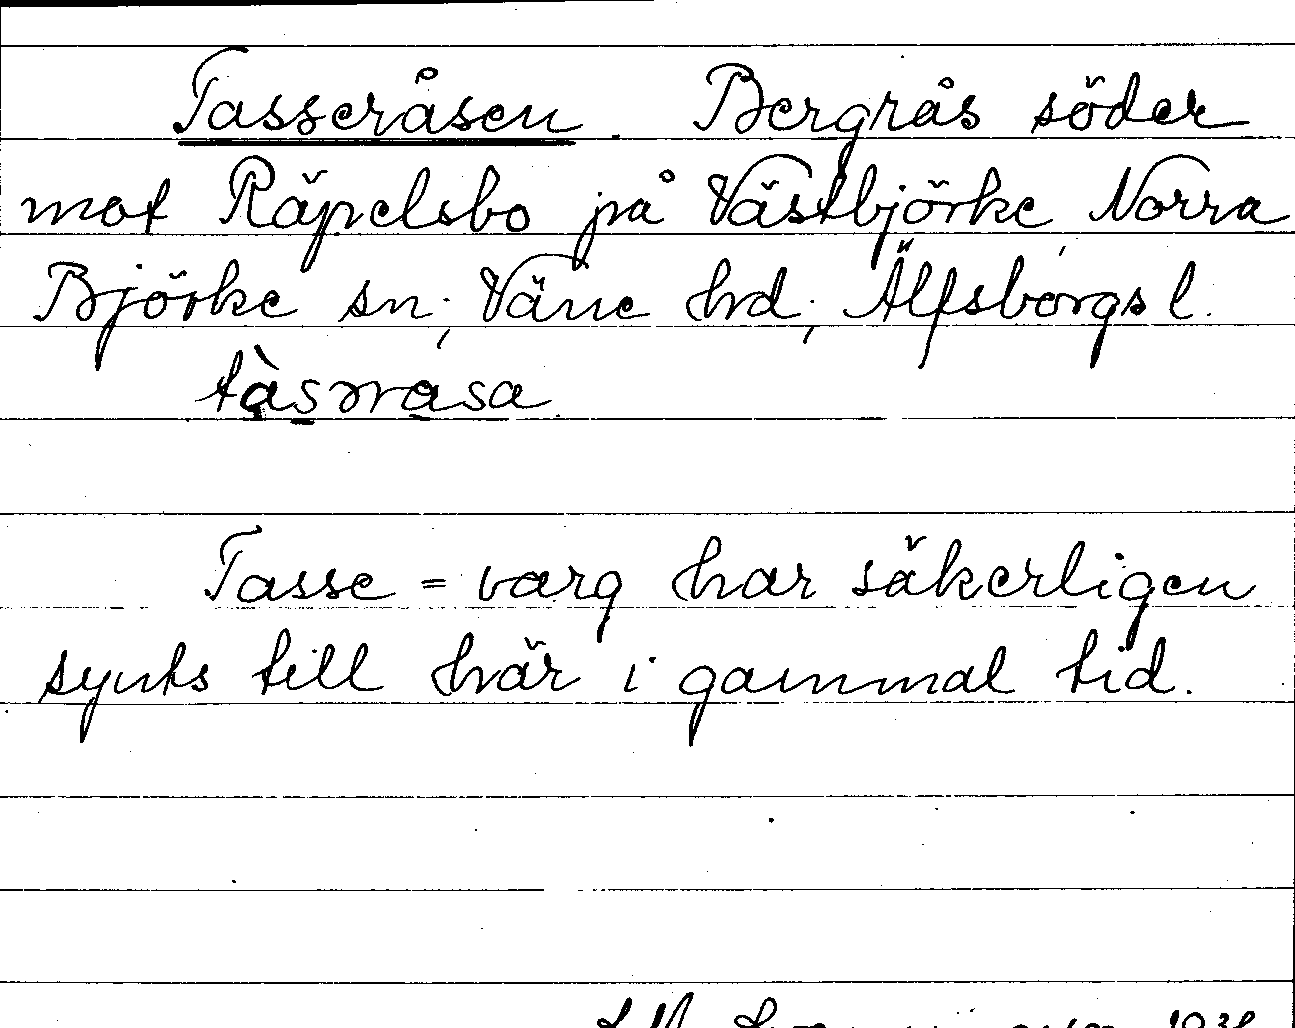 Tasseråsen. Bergrås söder
mot Räpelsbo på Västbjörke, Norra
Björke sn; Väne hd; Älfsborgs l.
Tasse = varg har säkerligen
synts till här i gammal tid.